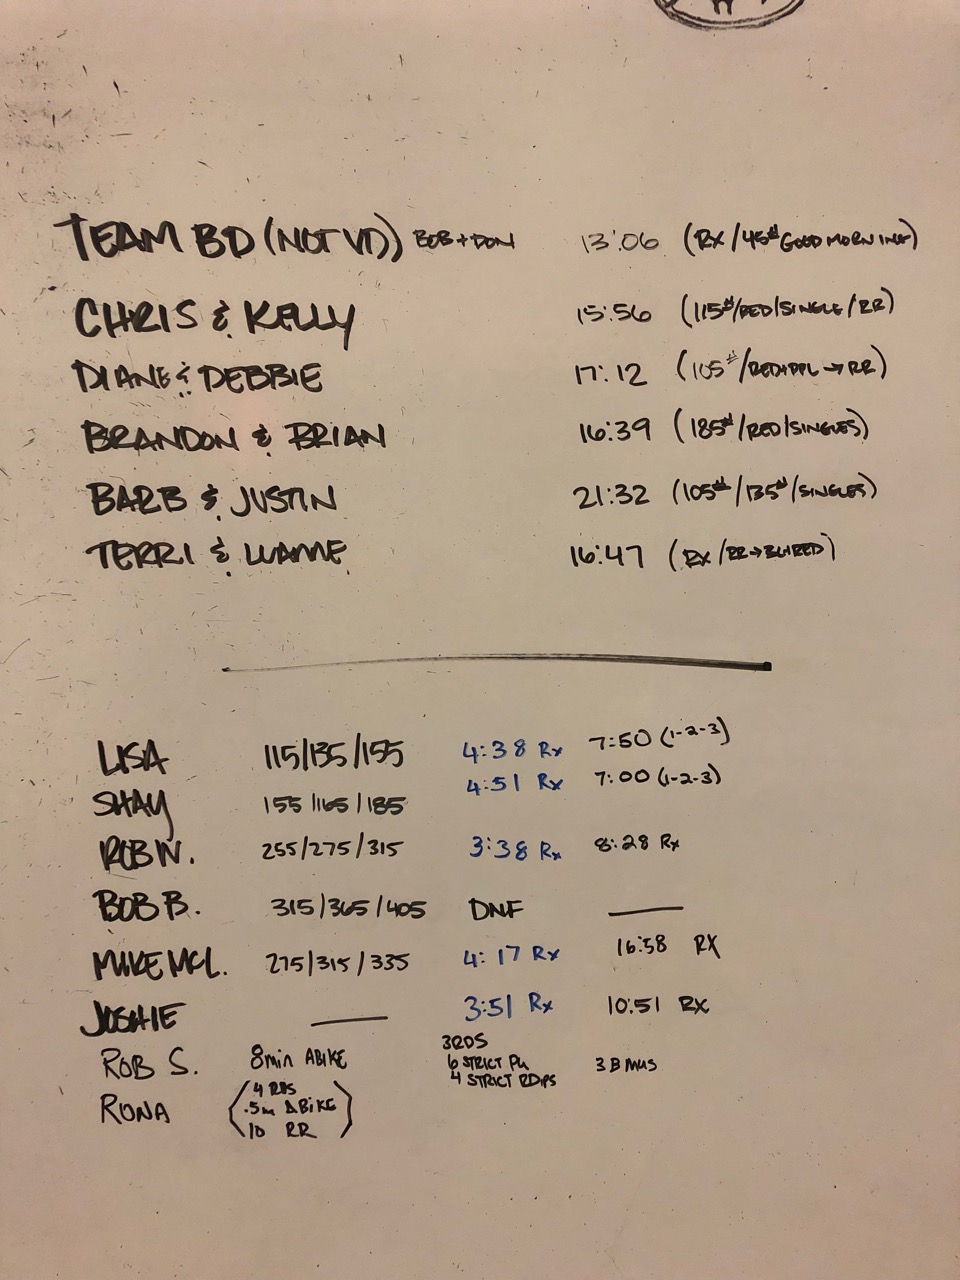 TEAM BD (NOT VD) BOB + DON 13:06 (RX/45# GOOD MORNING)
CHRIS & KELLY 15:56 (115#/RED/SINGLE/RR)
DIANE & DEBBIE 17:12 (105#/RED+PPL→RR)
BRANDON & BRIAN 16:39 (185#/RED/SINGLES)
BARB & JUSTIN 21:32 (105#/135#/SINGLES)
TERRI & LUANNE 16:47 (RX/RR→BL+RED)
LISA 115/135/155 4:38 Rx 7:50 (1-2-3)
SHAY 155/165/185 4:51 Rx 7:00 (1-2-3)
ROB W. 255/275/315 3:38 Rx 8:28 Rx
BOB B. 315/365/405 DNF —
MIKE MCL. 275/315/335 4:17 Rx 16:58 RX
JOSHIE — 3:51 Rx 10:51 RX
ROB S. 8min ABIKE 3RDS
6 STRICT PU
4 STRICT RDIPS 3 B MUS
RONA (4 RDS
.5m ABIKE
10 RR)